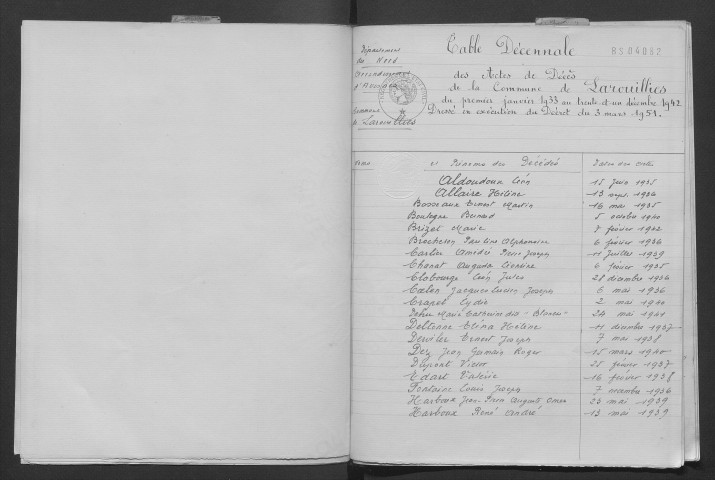 Département
du Nord
Arrondissement
d'Avesnes
Commune
de Larouillies
Table Décennale
RS 04082
des Actes de Décès
de la Commune de Larouillies
du premier janvier 1933 au trente et un décembre 1942
Dressé en exécution du Décret du 3 mars 1951.
Noms et Prénoms des Décédés Dates des actes
Aldoudoux Léon 15 juin 1935
Allaire Hélène 13 sept. 1936
Ernest Martin 16 mai 1935
Boutegne Bernard 5 octobre 1940
Brizet Marie 7 février 1942
Pauline Alphonsine 6 février 1936
Carlier Amédé Pierre Joseph 11 juillet 1939
Chonat Augusta 6 février 1935
Léon Jules 28 décembre 1936
Jacques Lucien Joseph 6 mai 1936
Crapet Lydie 2 mai 1940
Marie Catherine dite - Blanche - 24 mai 1941
Deltenne Eléna Hélène 11 décembre 1937
Ernest Joseph 7 mai 1938
Dez Jean Germain Roger 15 mars 1940
Dupont Victor 25 février 1937
Edart Valérie 16 février 1938
Fontaine Louis Joseph 7 novembre 1936
Harboux Jean Pain Auguste Omer 23 mai 1939
Harboux René André 13 mai 1939